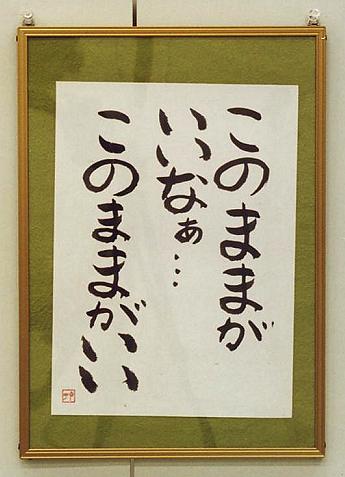 このままが
いいなぁ…
このままがいい